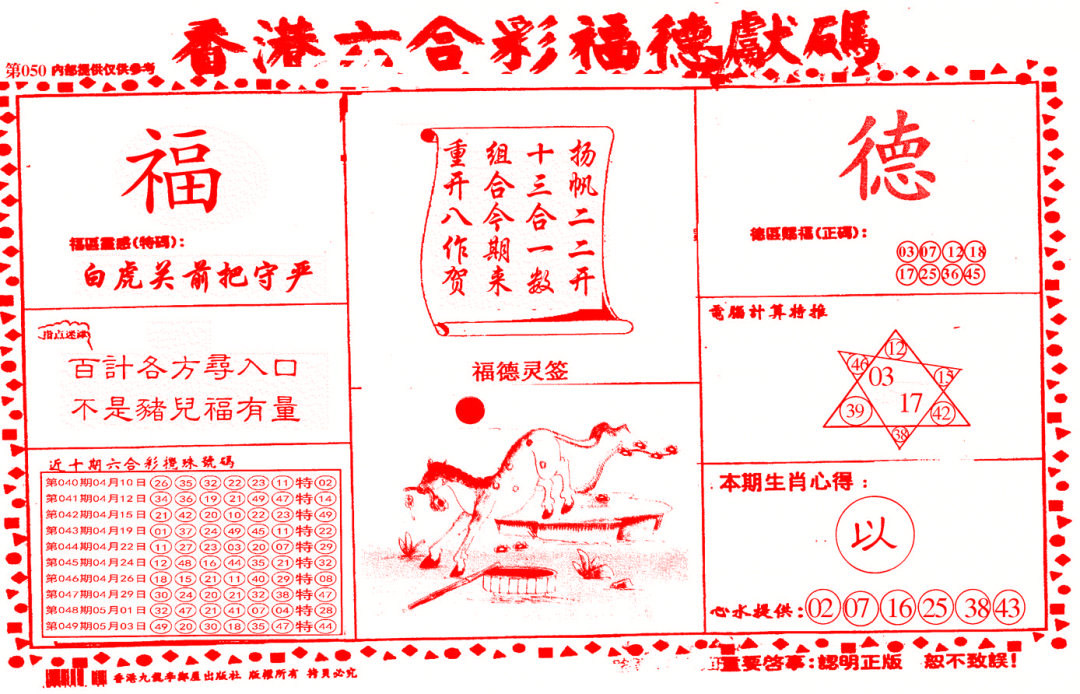 香港六合彩福德獻碼
第050 内部提供仅供参考
福
福區靈感(特碼)：
白虎关前把守严
指点迷津
百計各方尋入口
不是豬兒福有量
近十期六合彩攪珠號碼
第040期04月10日 26 35 32 22 23 11 特 02
第041期04月12日 34 36 19 21 49 47 特 14
第042期04月15日 21 42 20 10 22 23 特 49
第043期04月19日 01 37 24 49 45 11 特 22
第044期04月22日 11 27 23 03 20 07 特 29
第045期04月24日 12 48 16 44 35 21 特 32
第046期04月26日 18 15 21 11 40 29 特 08
第047期04月29日 30 24 20 21 32 38 特 47
第048期05月01日 32 47 21 41 07 04 特 28
第049期05月03日 49 20 30 18 35 47 特 44
扬帆二二开
十三合一数
组合今期来
重开八作贺
福德灵签
德
德區賜福(正碼)：
03 07 12 18
17 25 36 45
電腦計算特推
12
46 15
03
39 17 42
38
本期生肖心得：
以
心水提供：02 07 16 25 38 43
香港九龍李鄭屋出版社 版權所有 拷貝必究
重要啓事：認明正版 恕不致誤！